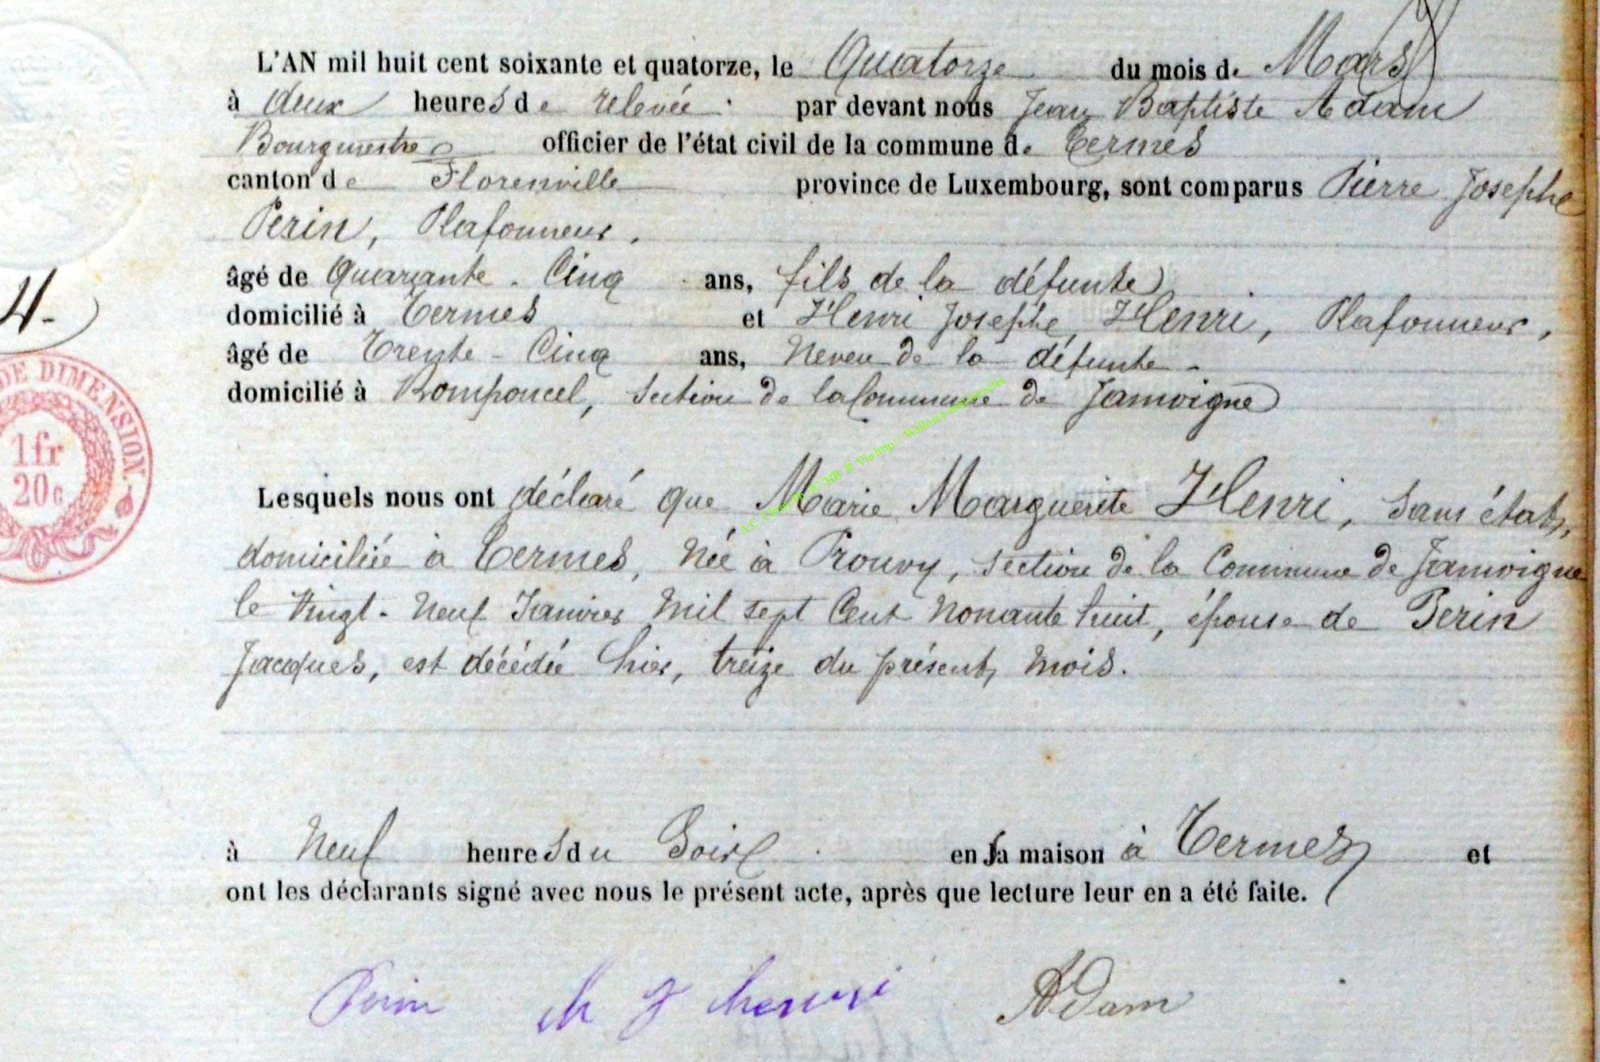 L'AN mil huit cent soixante et quatorze, le Quatorze du mois de Mars
à deux heures de relevée par devant nous Jean Baptiste Adam
Bourgmestre officier de l'état civil de la commune de Termes
canton de Florenville province de Luxembourg, sont comparus Pierre Josephe
Perin, Plafonneur.
âgé de Quarante-Cinq ans, fils de la défunte
domicilié à Termes et Henri Josephe Henri, Plafonneur,
4.
âgé de Trente-Cinq ans, Neveu de la défunte
domicilié à Romponcel, Section de la Commune de Jamoigne
DE DIMENSION.
1 fr
20 c
Lesquels nous ont déclaré que Marie Marguerite Henri, Sans état,
domiciliée à Termes, Née à Prouvy, section de la Commune de Jamoigne
le Vingt-Neuf Janvier Mil sept Cent Nonante huit, épouse de Perin
Jacques, est décédée hier, treize du présent mois.
à Neuf heures du Soir en sa maison à Termes et
ont les déclarants signé avec nous le présent acte, après que lecture leur en a été faite.
Perin h J henri Adam